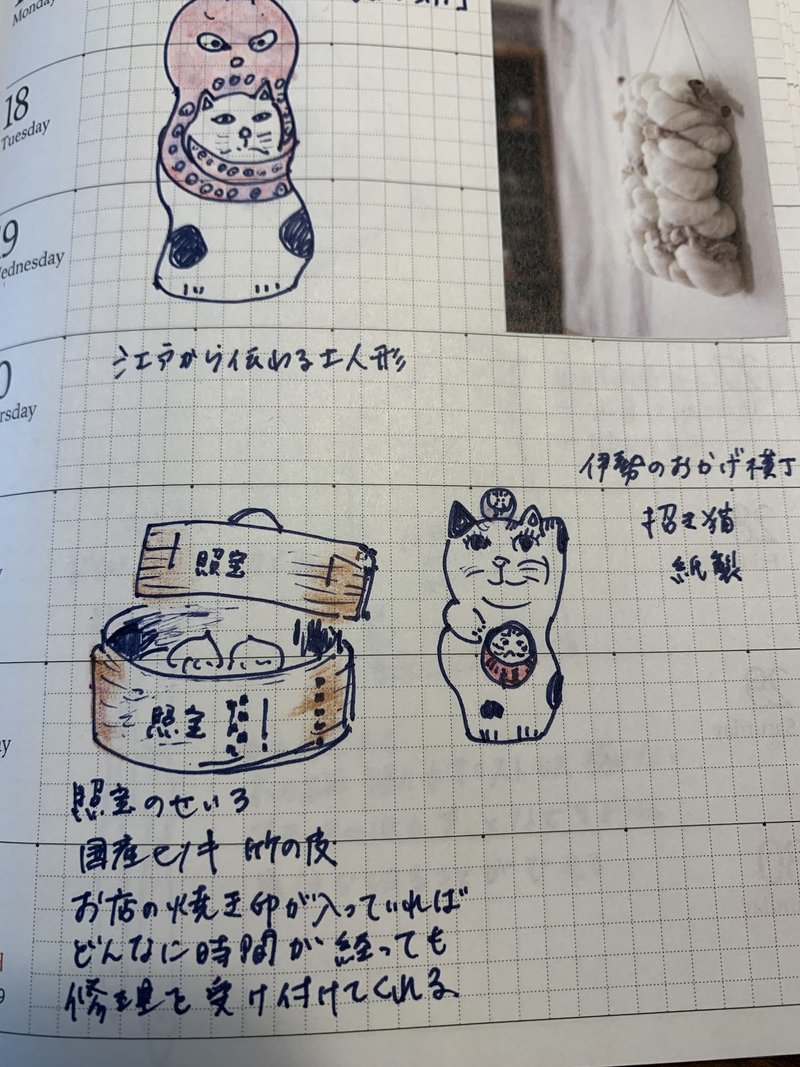 Monday
18
Tuesday
9
ednesday
江戸から伝わる土人形
0
rsday
伊勢のおかげ横丁
招き猫
紙製
照宝
照宝
照宝のせいろ
国産ヒノキ 竹の皮
お店の焼き印が入っていれば
どんなに時間が経っても
修理を受け付けてくれる。
y
y
9